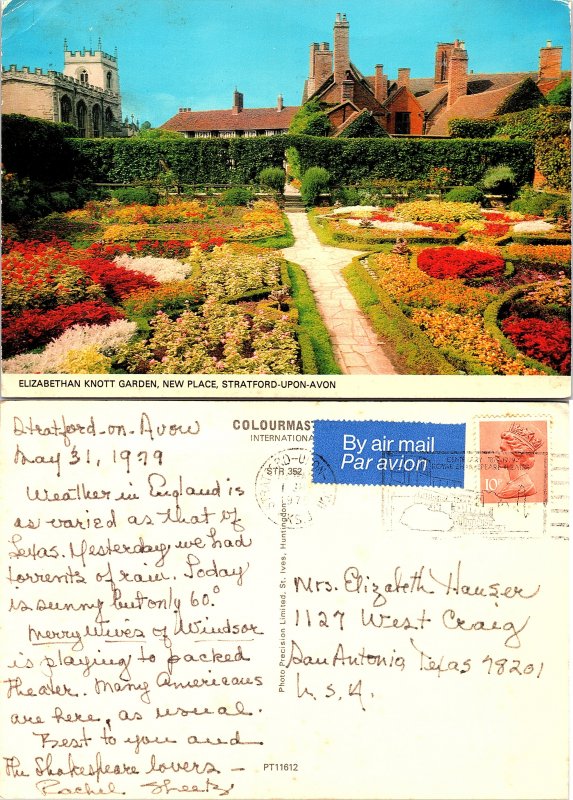 ELIZABETHAN KNOTT GARDEN, NEW PLACE, STRATFORD-UPON-AVON
Stratford-on-Avon
May 31, 1979
Weather in England is
as varied as that of
Texas. Yesterday we had
torrents of rain. Today
is sunny but only 60°
Merry Wives of Windsor
is playing to packed
theater. Many Americans
are here, as usual.
Best to you and
the Shakespeare lovers –
Rachel Sheetz
COLOURMAST
INTERNATIONAL
STR 352
By air mail
Par avion
10P
Photo Precision Limited, St. Ives, Huntingdon
Mrs. Elizabeth Hauser
1127 West Craig
San Antonio Texas 78201
U.S.A.
PT11612